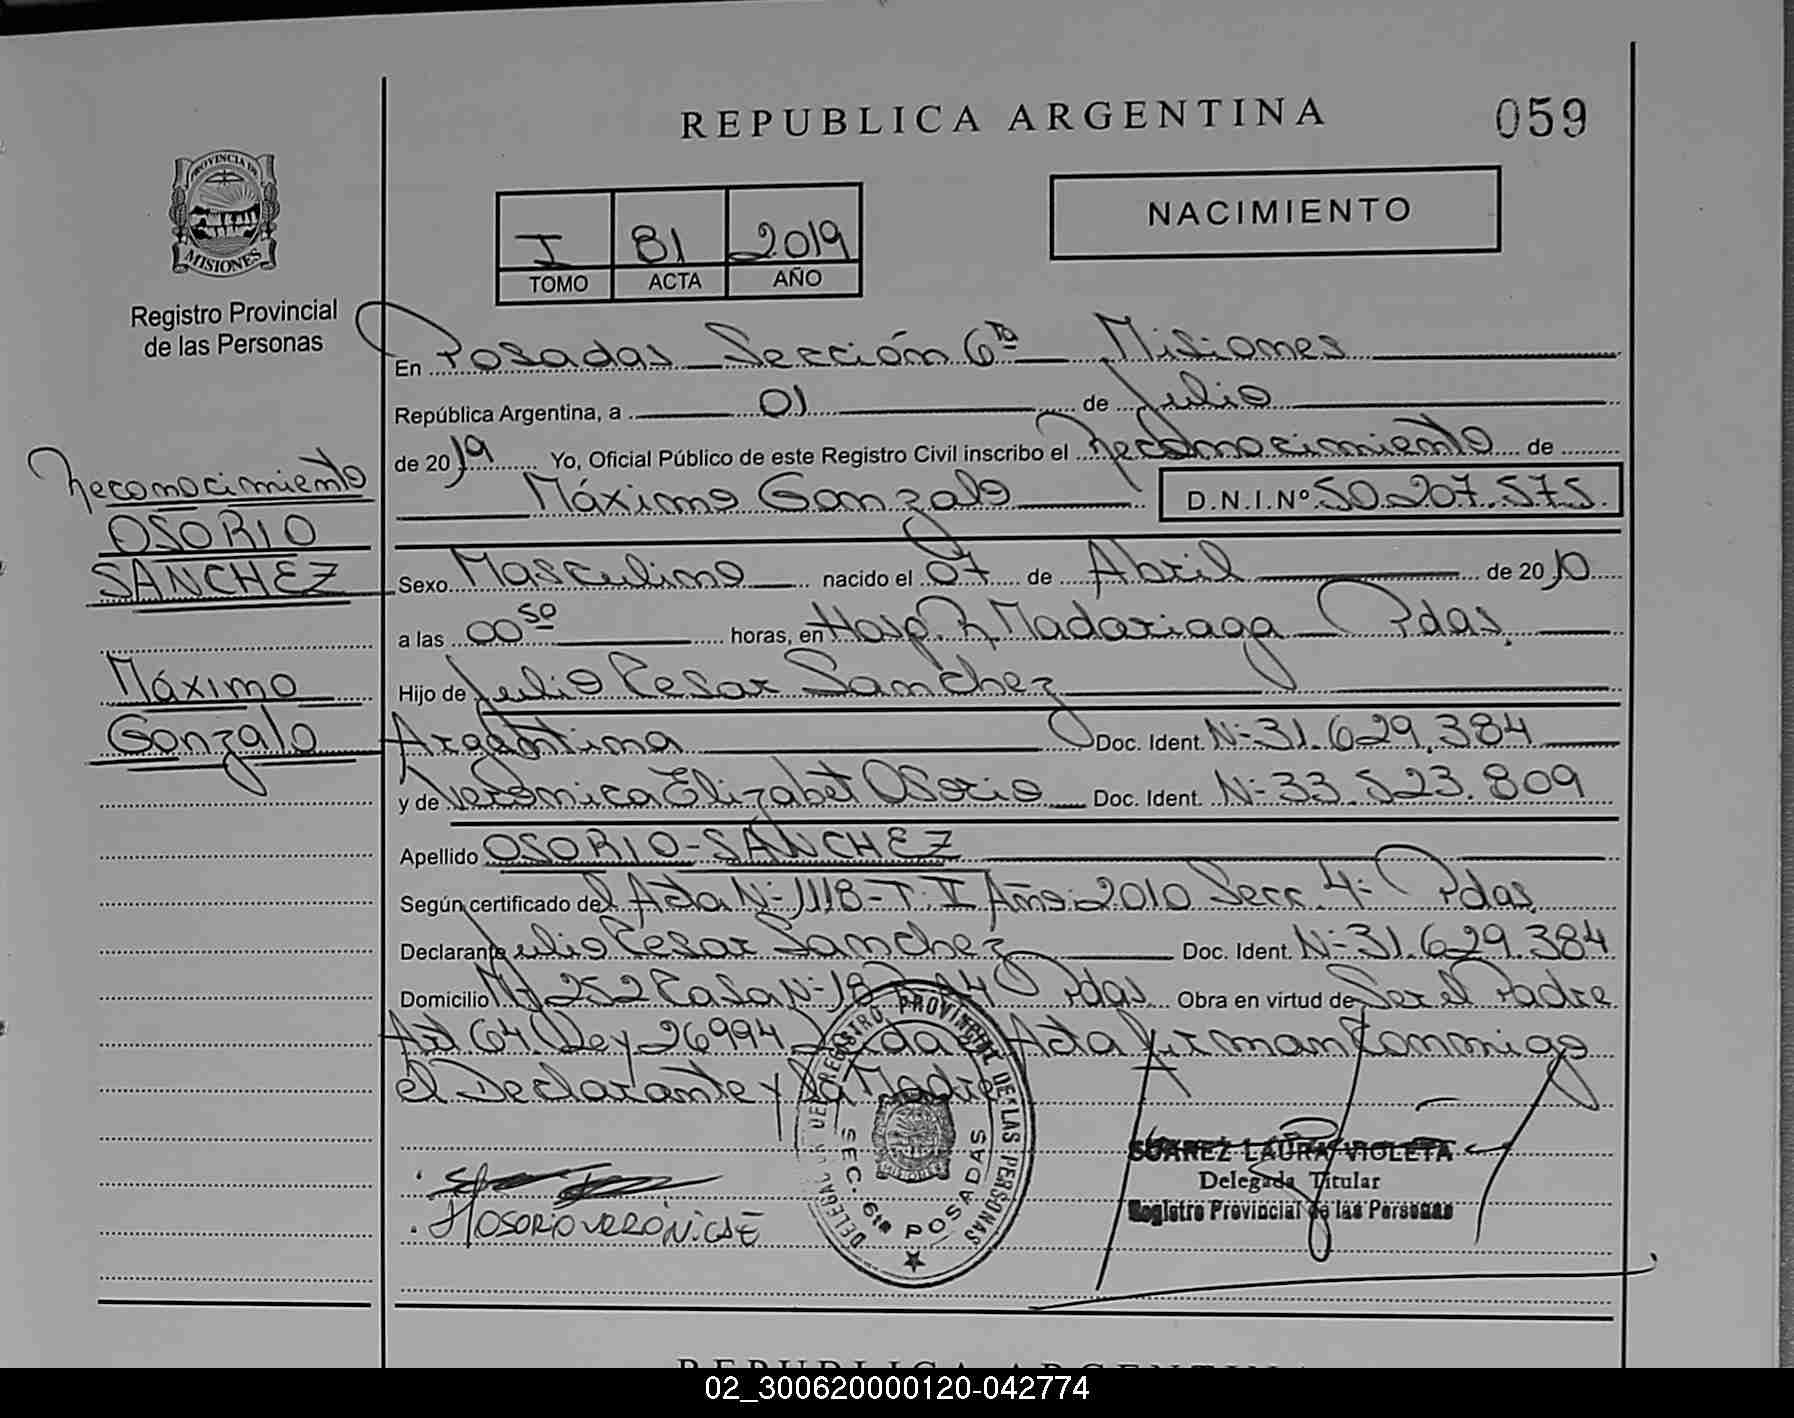 REPUBLICA ARGENTINA
059
NACIMIENTO
I 81 2019
TOMO ACTA AÑO
PROVINCIA DE
MISIONES
Registro Provincial
de las Personas
Reconocimiento
OSORIO
SANCHEZ
Máximo
Gonzalo
En Posadas Sección 6ta Misiones
República Argentina, a 01 de Julio
de 2019 Yo, Oficial Público de este Registro Civil inscribo el Reconocimiento de
Máximo Gonzalo D.N.I.Nº 50.207.575.
Sexo Masculino nacido el 07 de Abril de 2010
a las 00 50 horas, en Hosp. R. Madariaga Pdas.
Hijo de Julio Cesar Sanchez
Argentina Doc. Ident. Nº 31.629.384
y de Verónica Elizabet Osorio Doc. Ident. Nº 33.523.809
Apellido OSORIO-SANCHEZ
Según certificado del Acta Nº 1118-T: I Año: 2010 Secc. 4º Pdas.
Declarante Julio Cesar Sanchez Doc. Ident. Nº 31.629.384
Domicilio Mz 252 Casa Nº 18 Pdas. Obra en virtud de Ser el Padre
Art 64 Ley 26994 Acta firman conmigo
el Declarante y la Madre
DELEGACION DEL REGISTRO PROVINCIAL DE LAS PERSONAS
SEC. 6ta POSADAS
OSORIO VERÓNICA E
SUAREZ LAURA VIOLETA
Delegada Titular
Registro Provincial de las Personas
REPUBLICA ARGENTINA
02_300620000120-042774